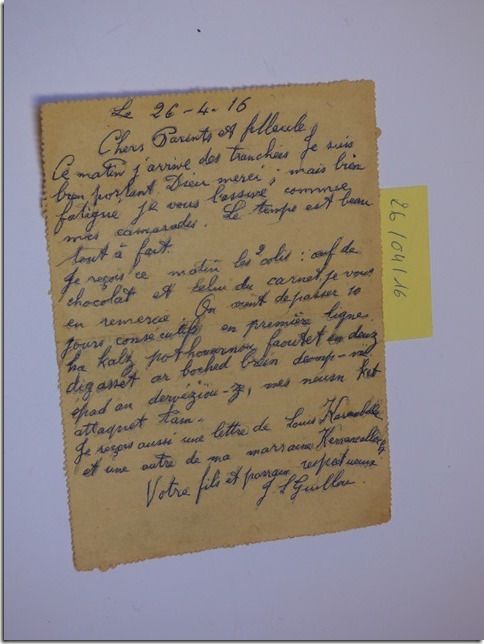 Le 26-4-16
Chers Parents et filleule
Ce matin j'arrive des tranchées je suis
bien portant Dieu merci ; mais bien
fatigué je vous l'assure comme
mes camarades. Le temps est beau
tout à fait.
Je reçois ce matin les 2 colis : œuf de
chocolat et celui du carnet, je vous
en remercie. On vient de passer 10
jours consécutifs en première ligne.
ha kalz pothouarnou faoutet en deuz
digasset ar boched brein deomp-ni
épad an dervéziou-z, mes neusn ket
attaquet tam.
Je reçois aussi une lettre de Louis
et une autre de ma marraine
Votre fils et parrain respectueux
J L Guillou.
26/04/16